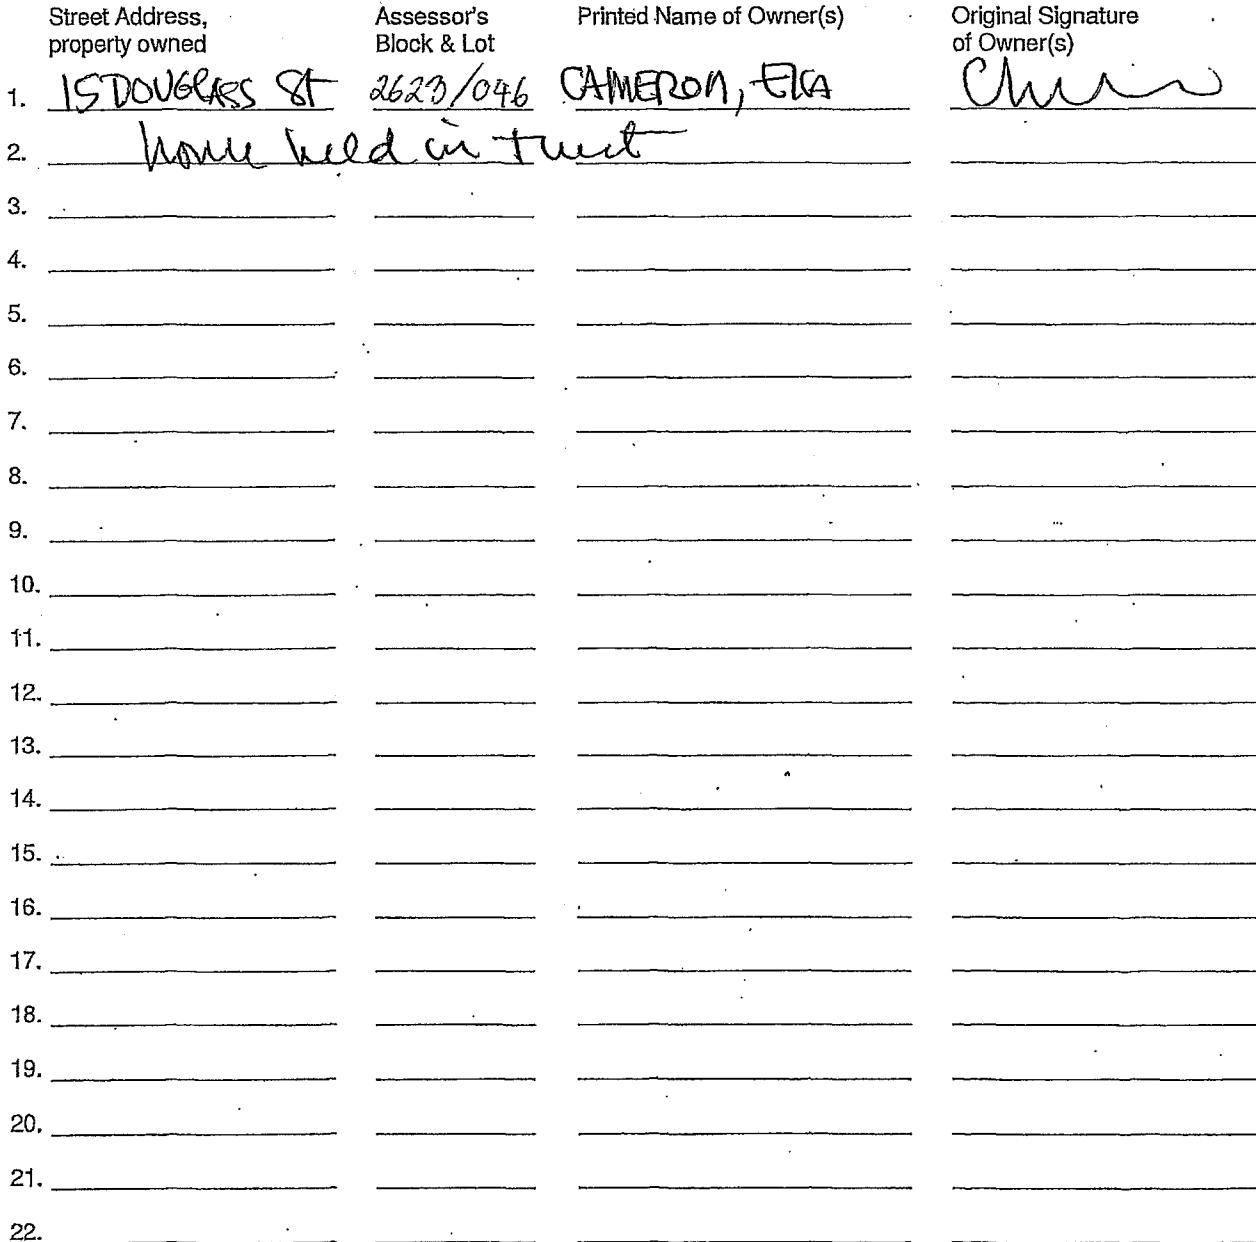 Street Address, property owned Assessor's Block & Lot Printed Name of Owner(s) Original Signature of Owner(s)
1. 15 DOUGLASS St 2623/046 CAMERON,
2. home held in trust
3.
4.
5.
6.
7.
8.
9.
10.
11.
12.
13.
14.
15.
16.
17.
18.
19.
20.
21.
22.